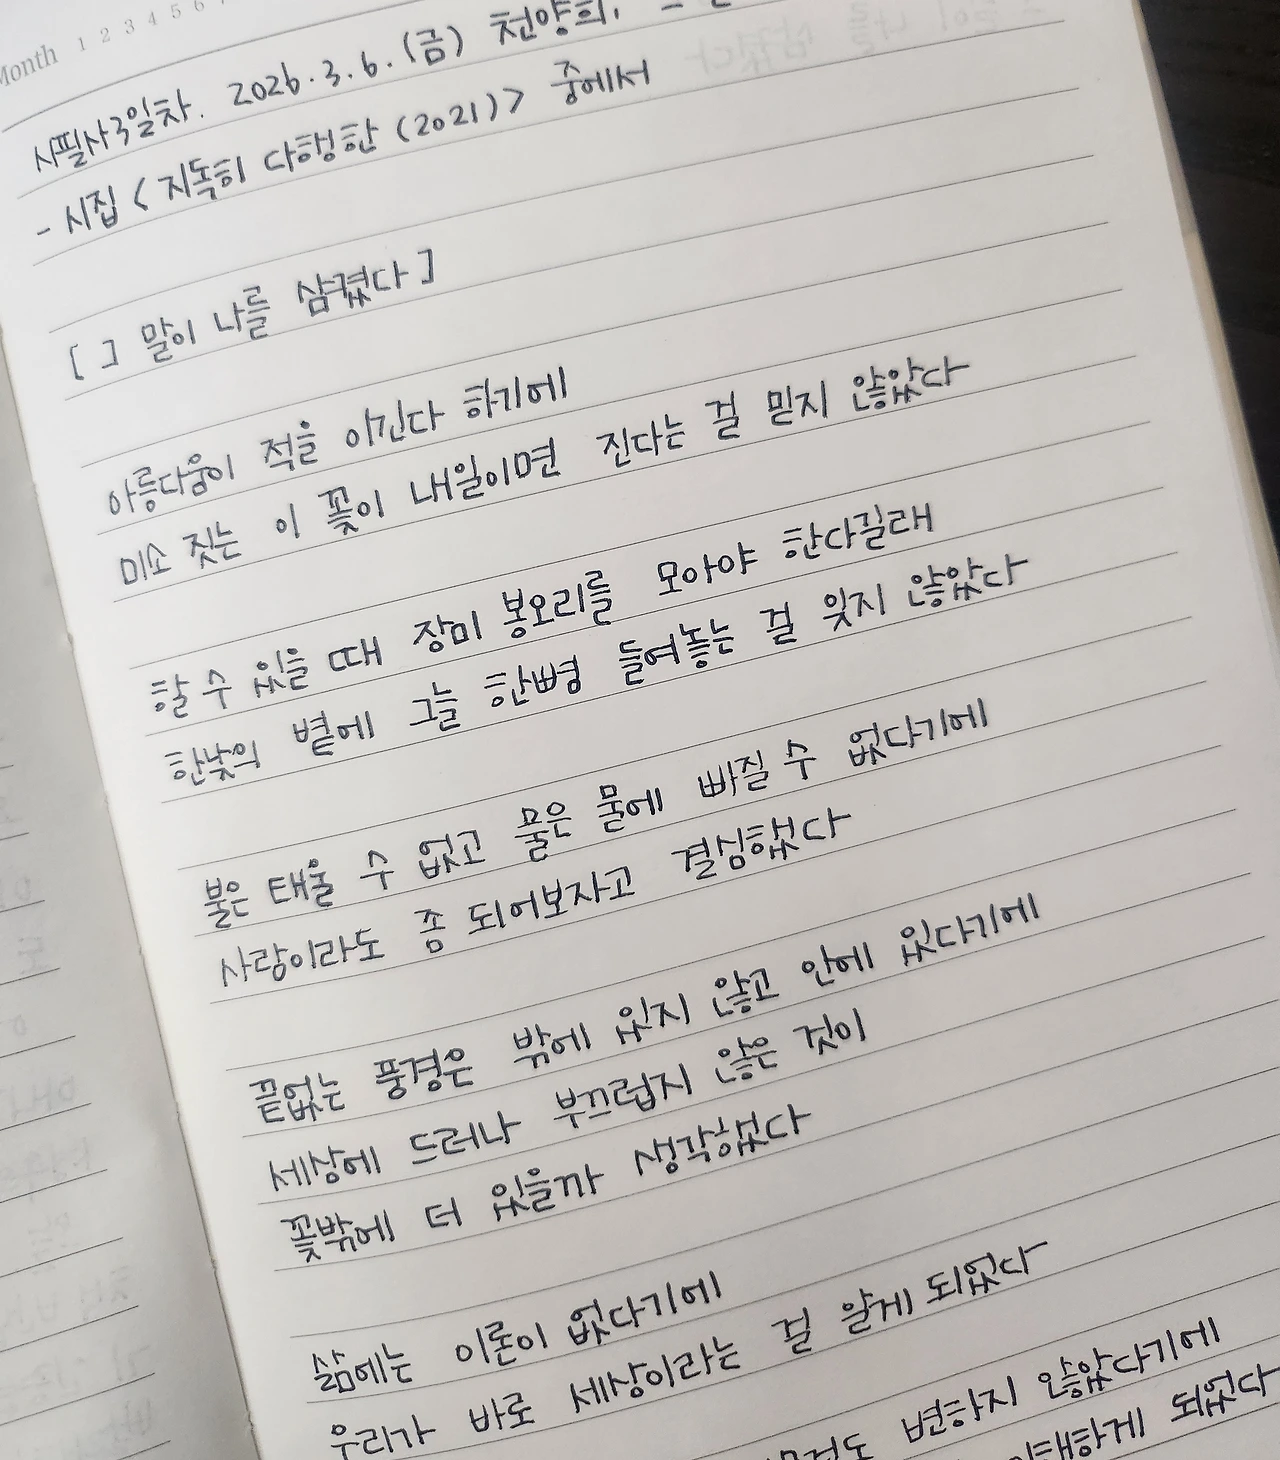 Month 1 2 3 4 5 6
시필사3일차. 2026.3.6.(금) 천양희.
- 시집 < 지독히 다행한 (2021)> 중에서
[ ] 말이 나를 삼켰다 ]
아름다움이 적을 이긴다 하기에
미소 짓는 이 꽃이 내일이면 진다는 걸 믿지 않았다
할 수 있을 때 장미 봉오리를 모아야 한다길래
한낮의 볕에 그늘 한뼘 들여놓는 걸 잊지 않았다
불은 태울 수 없고 물은 물에 빠질 수 없다기에
사랑이라도 종 되어보자고 결심했다
끝없는 풍경은 밖에 있지 않고 안에 있다기에
세상에 드러나 부끄럽지 않은 것이
꽃밖에 더 있을까 생각했다
삶에는 이론이 없다기에
우리가 바로 세상이라는 걸 알게 되었다
변하지 않았다기에
되었다